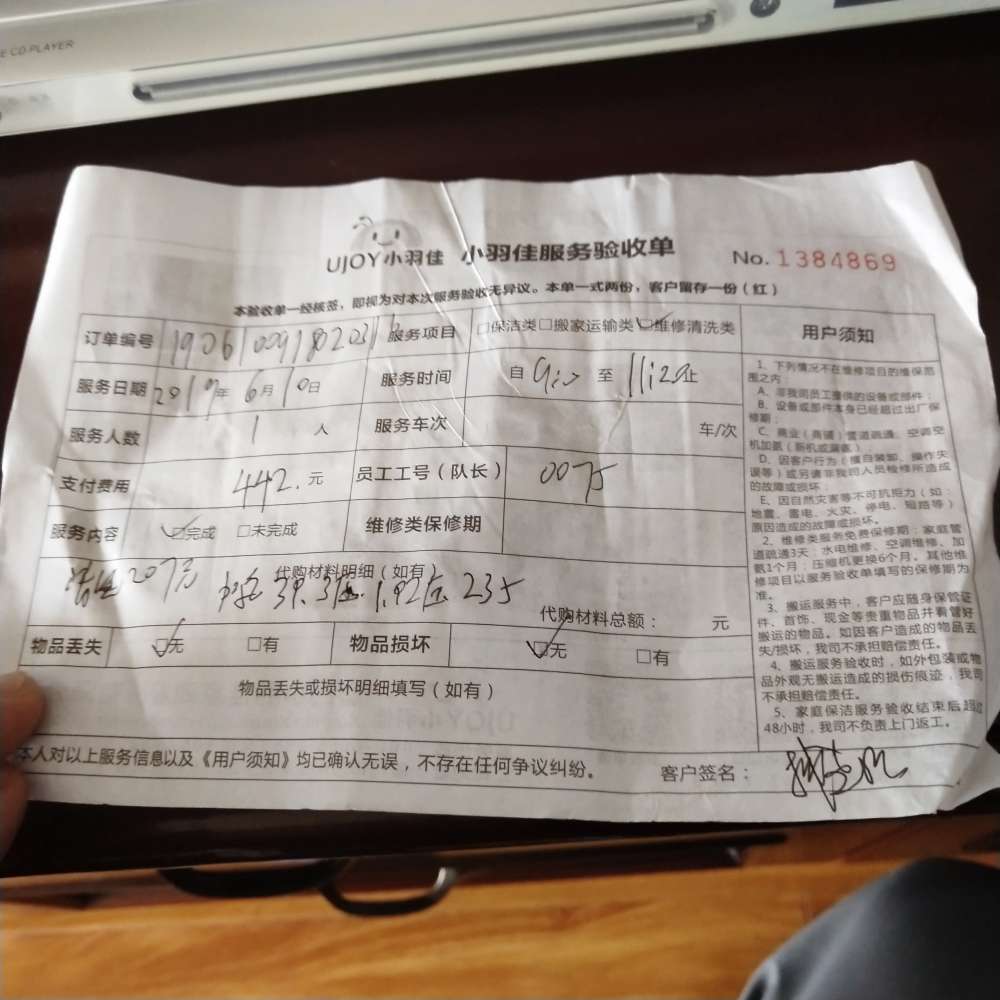 E CD PLAYER
UJOY小羽佳 小羽佳服务验收单 No. 1384869
本验收单一经核签，即视为对本次服务验收无异议。本单一式两份，客户留存一份（红）
订单编号 服务项目 □保洁类□搬家运输类□维修清洗类
服务日期 2019年6月10日 服务时间 自 至 11:20止
服务人数 1 人 服务车次 车/次
支付费用 442.元 员工工号（队长）
服务内容 □完成 □未完成 维修类保修期
代购材料明细（如有）
207元 235
代购材料总额： 元
物品丢失 □无 □有 物品损坏 □无 □有
物品丢失或损坏明细填写（如有）
本人对以上服务信息以及《用户须知》均已确认无误，不存在任何争议纠纷。 客户签名：
用户须知
1、下列情况不在维修项目的维保范
围之内：
A、非我司员工提供的设备或部件；
B、设备或部件本身已经超过出厂保
修期；
C、商业（商铺）管道疏通、空调空
机加氨（新机或漏氨）
D、因客户行为（擅自装卸、操作失
误等）或另请非我司人员检修所造成
的故障或损坏
E、因自然灾害等不可抗拒力（如：
地震、雷电、火灾、停电、短路等）
原因造成的故障或损坏。
2、维修类服务免费保修期：家庭管
道疏通3天；水电维修、空调维修、加
氨1个月；压缩机更换6个月。其他维
修项目以服务验收单填写的保修期为
准。
3、搬运服务中，客户应随身保管证
件、首饰、现金等贵重物品并看管好
搬运的物品。如因客户造成的物品丢
失/损坏，我司不承担赔偿责任。
4、搬运服务验收时，如外包装或物
品外观无搬运造成的损伤痕迹，我司
不承担赔偿责任。
5、家庭保洁服务验收结束后超过
48小时，我司不负责上门返工。